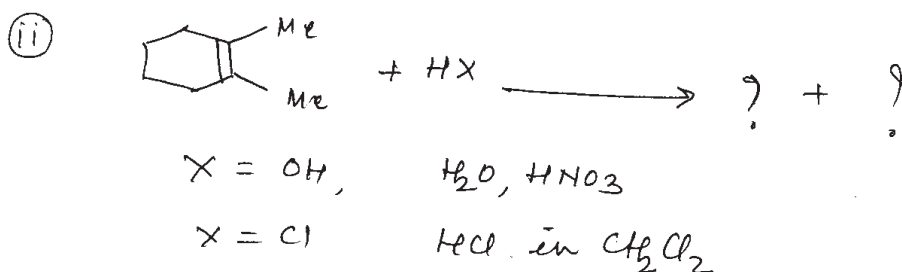 ii
Me
Me
+ HX ⟶ ? + ?
X = OH, H2O, HNO3
X = Cl HCl in CH2Cl2